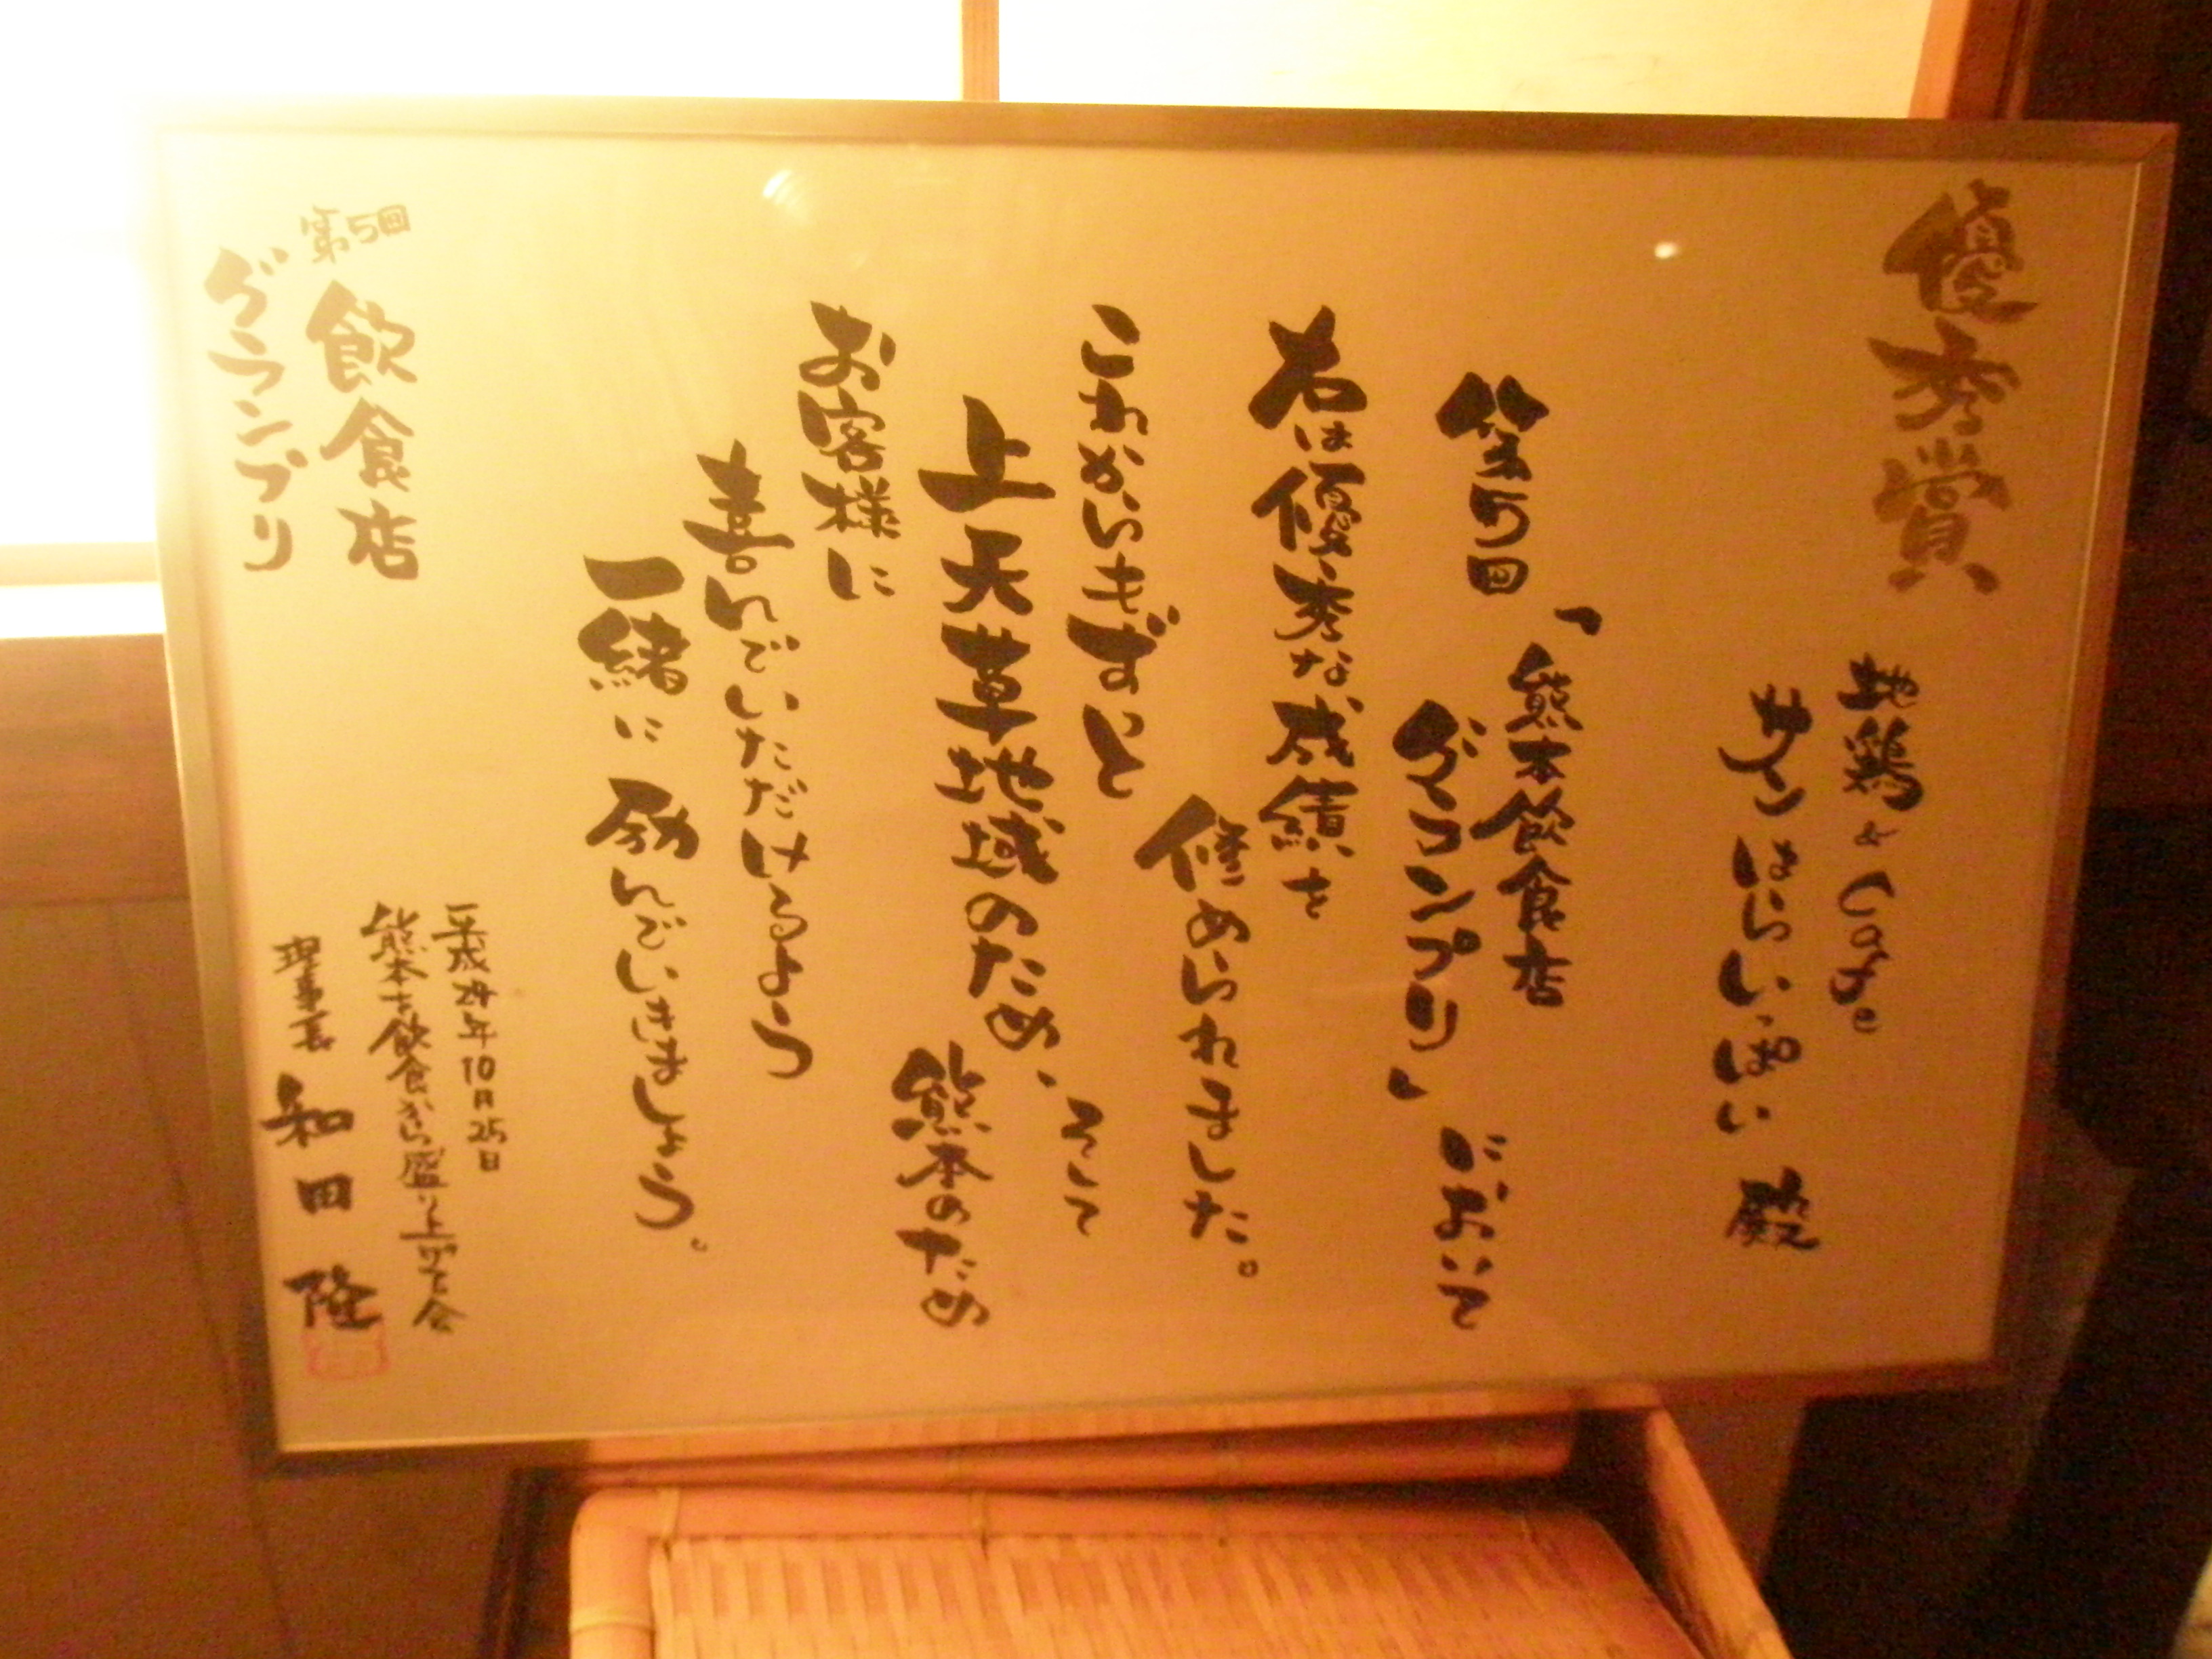 優秀賞
地鶏&Cafe
サンはらいっぱい 殿
第5回「熊本飲食店
グランプリ」において
右は優秀な成績を
修められました。
これからもずっと
上天草地域のため、そして
熊本のため
お客様に
喜んでいただけるよう
一緒に励んでいきましょう。
平成24年10月25日
熊本を飲食から盛り上げる会
理事長 和田 隆
第5回
飲食店
グランプリ